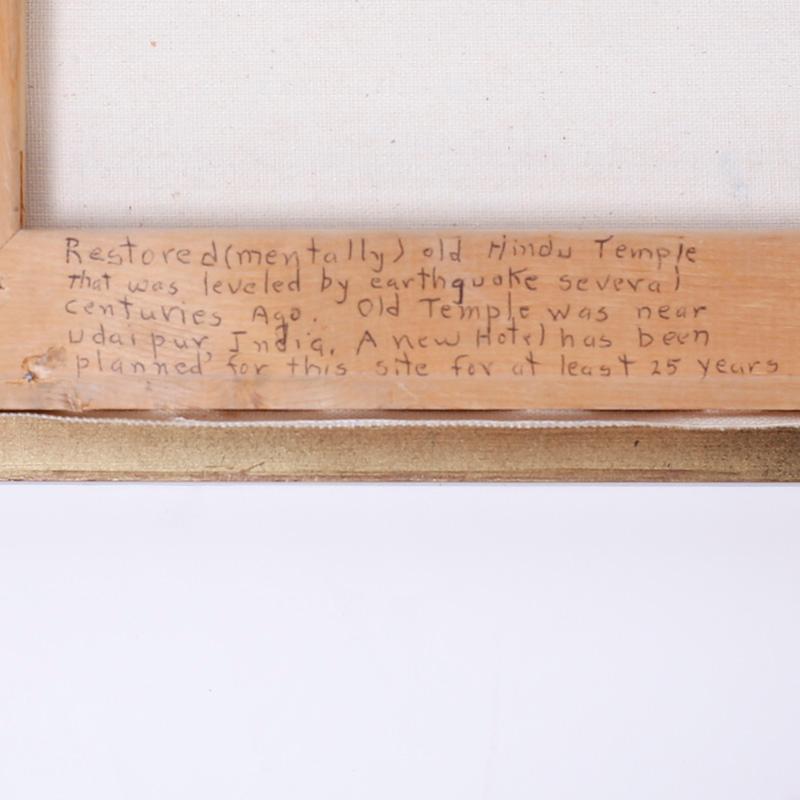 Restored (mentally) old Hindu Temple
that was leveled by earthquake several
centuries Ago. Old Temple was near
Udaipur, India. A new Hotel has been
planned for this site for at least 25 years